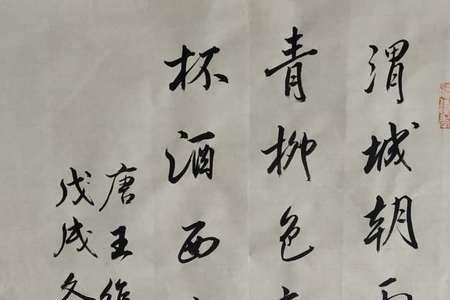 渭城朝雨
青柳色
杯酒西
唐王
戊戌冬